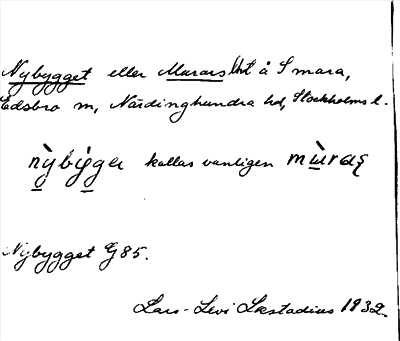 Nybygget eller Murars lht å Smara,
Edsbro sn, Närdinghundra hd, Stockholms l.
nỳbýger kallas vanligen mùraʂ
Nybygget G85.
Lars-Levi Læstadius 1932.